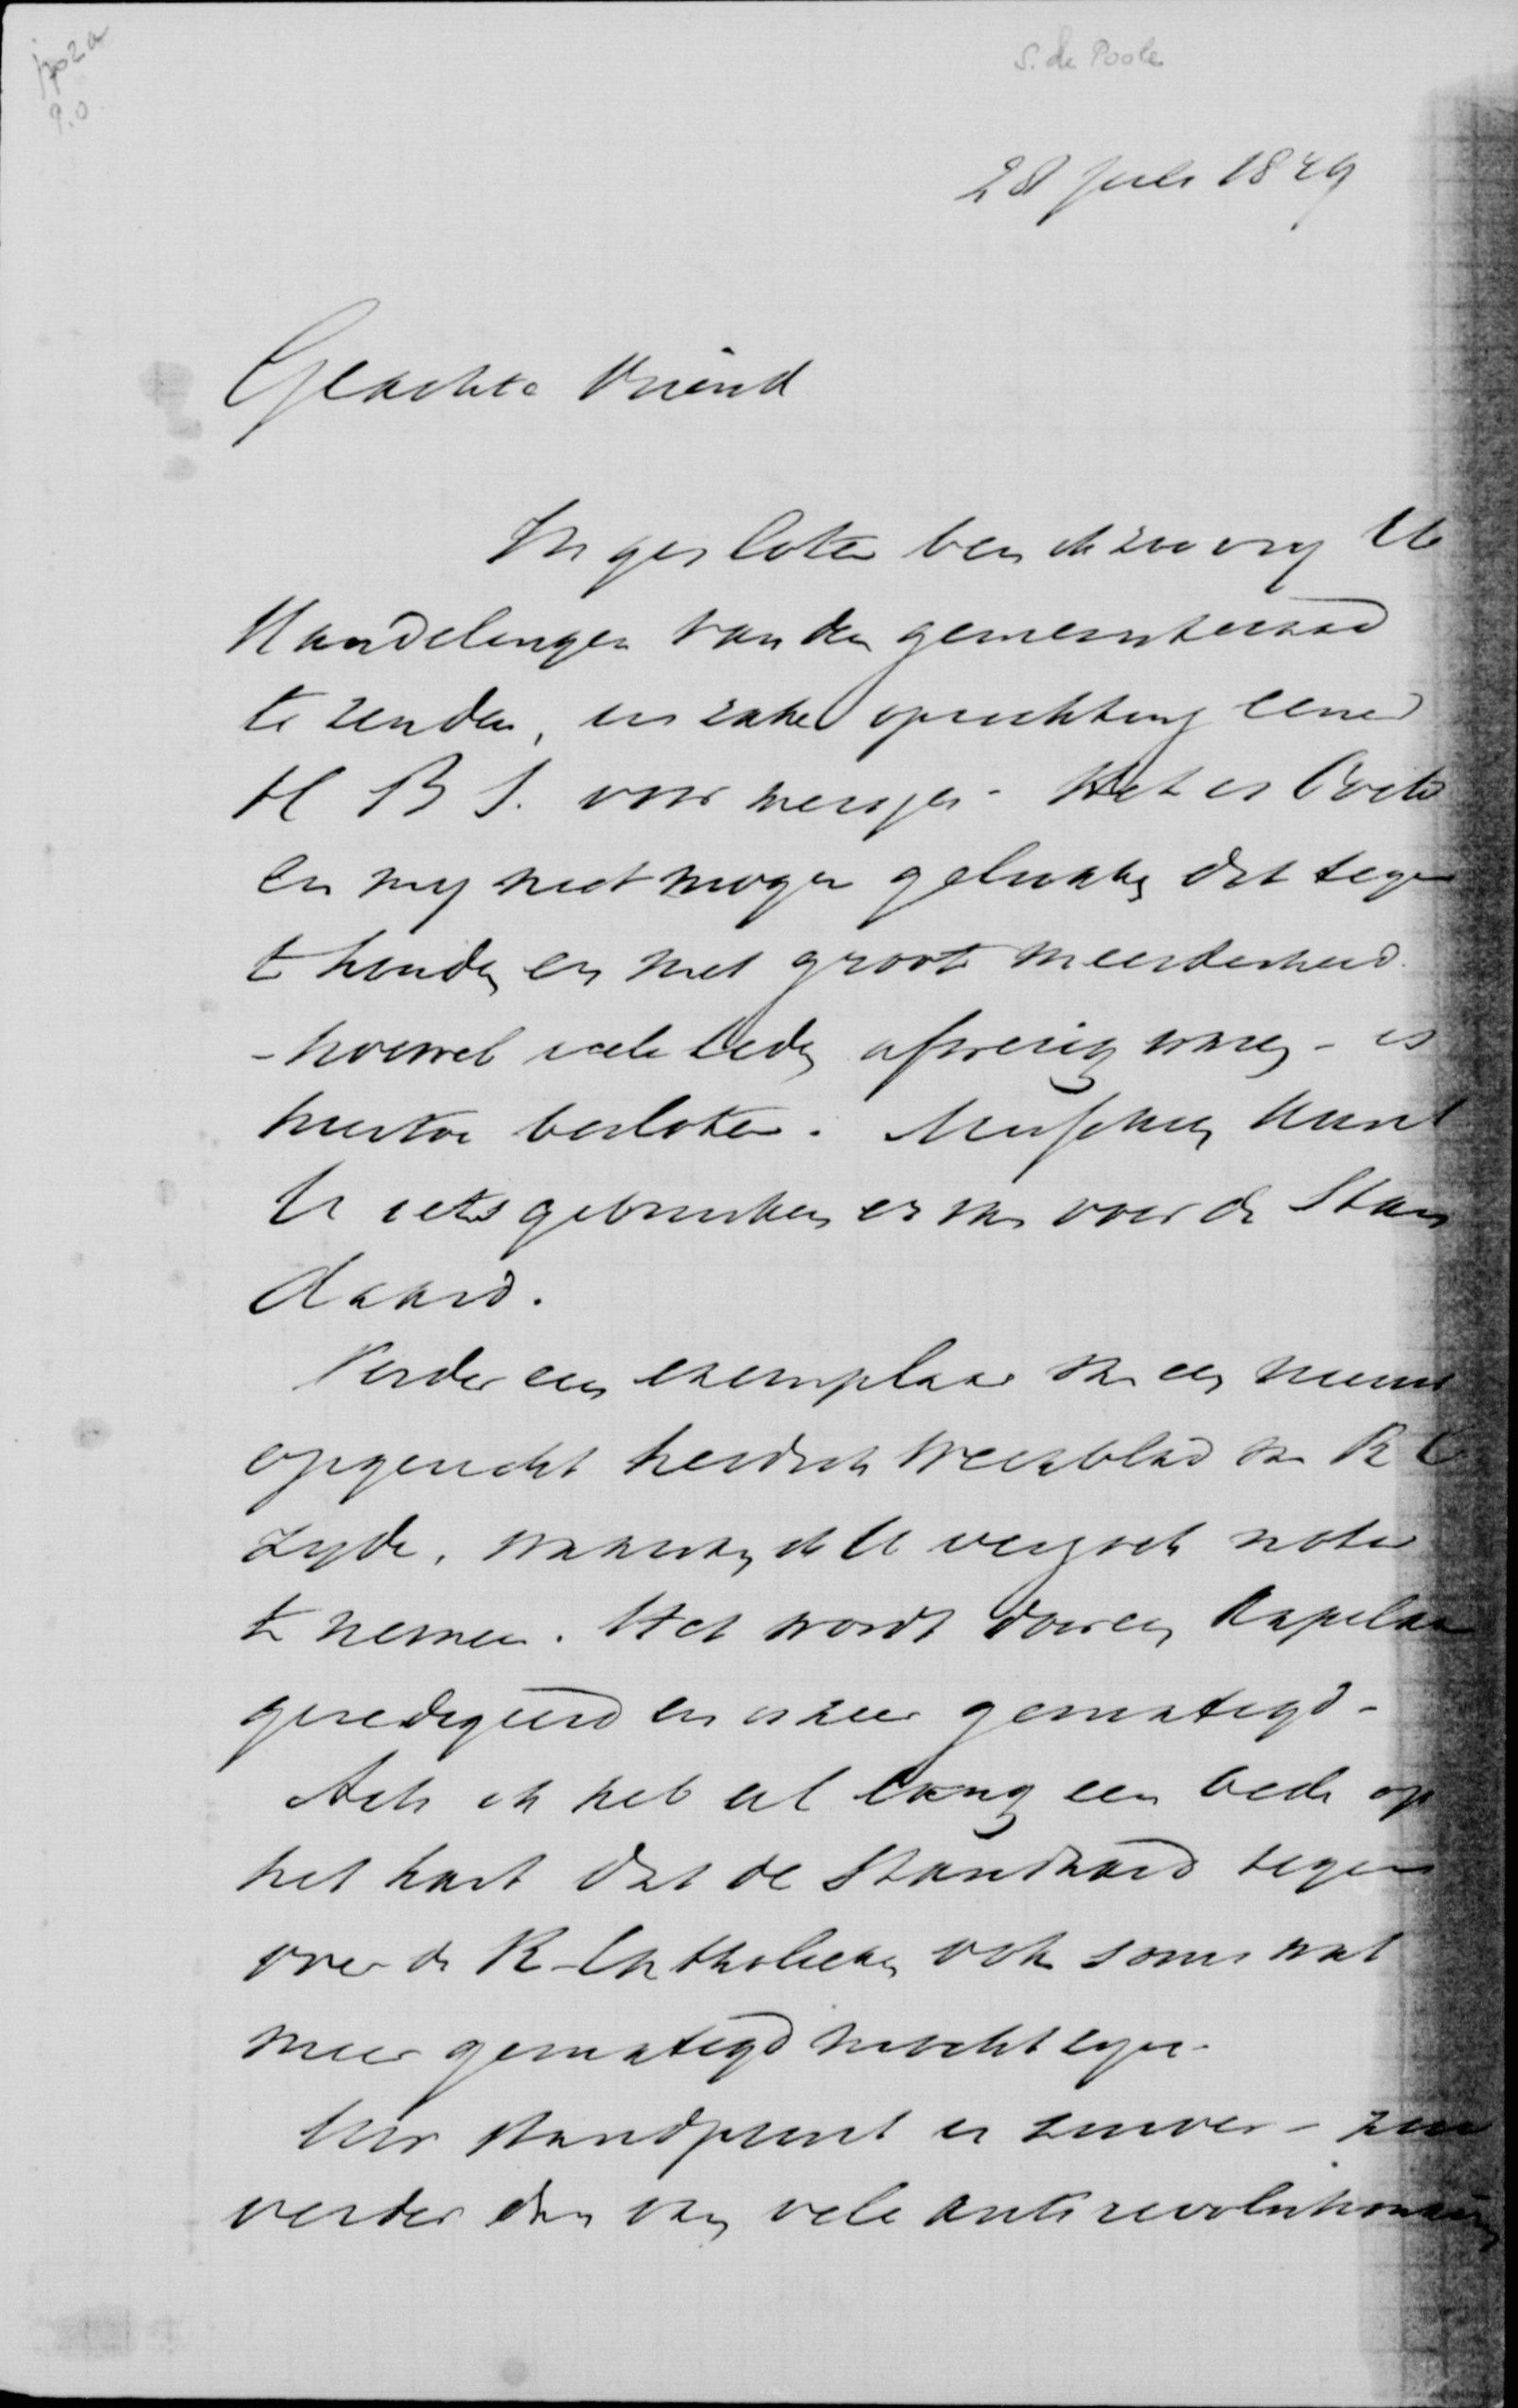 S. de Poole
28 Juli 1879
Geachte Vriend
Ingesloten ben ik zoo vrij U
Handelingen van den gemeenteraad
te zenden, in zake oprichting eener
H B S. voor meisjes - Het is
en mij niet mogen gelukken dit tegen
te houden en met groote meerderheid
- hoewel vele leden afwezig waren - is
hiertoe besloten. Misschien kunt
U iets gebruiken er van voor de Stan
daard.
Verder een exemplaar van een nieuw
opgericht heidsch Weekblad van R C
zyde, waarvan ik U verzoek nota
te nemen. Het wordt door een Kapelaan
geredigeerd en is zeer gematigd -
Ach ik heb al lang een bede op
het hart dat de Standaard tegen
over de R-Catholieken ook soms wat
meer gematigd mocht zijn.
Uw standpunt is zuiver - zui
verder dan van vele antirevolutionairen